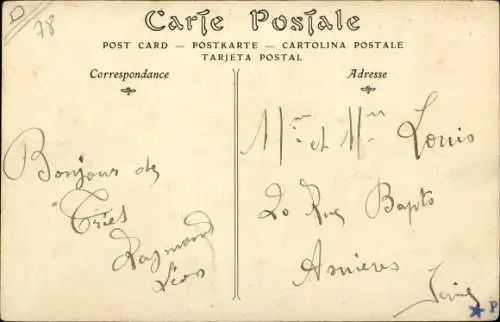 D
78
Carte Postale
POST CARD — POSTKARTE — CARTOLINA POSTALE
TARJETA POSTAL
Correspondance
Adresse
Bonjour de
Triel
Raymond
Léon
Mr et Mme Louis
20 Rue Bapts
Asnières
Seine
P